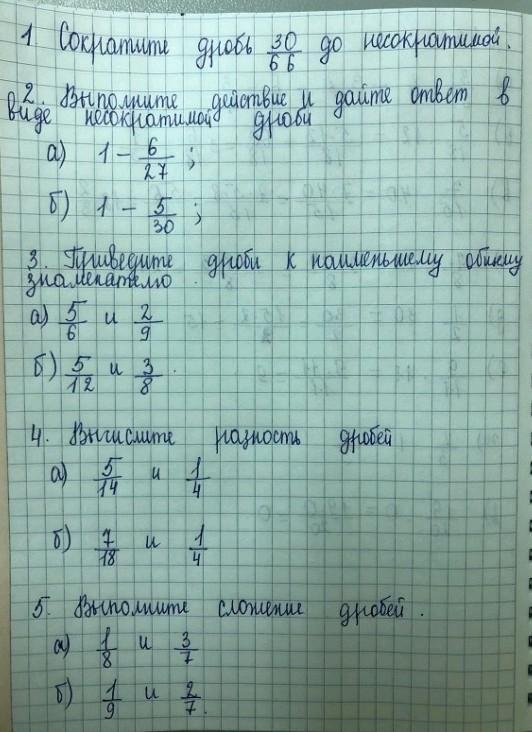 1 Сократите дробь 30/66 до несократимой.
2. Выполните действие и дайте ответ в
виде несократимой дроби
а) 1 - 6/27 ;
б) 1 - 5/30 ;
3. Приведите дроби к наименьшему общему
знаменателю.
а) 5/6 и 2/9
б) 5/12 и 3/8.
4. Вычислите разность дробей
а) 5/14 и 1/4
б) 7/18 и 1/4
5. Выполните сложение дробей.
а) 1/8 и 3/7
б) 1/9 и 2/7.